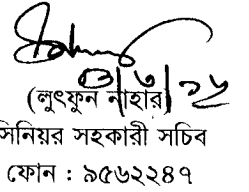 ০১/৬/১৬
(লুৎফুন নাহার)
সিনিয়র সহকারী সচিব
ফোন : ৯৫৬২২৪৭